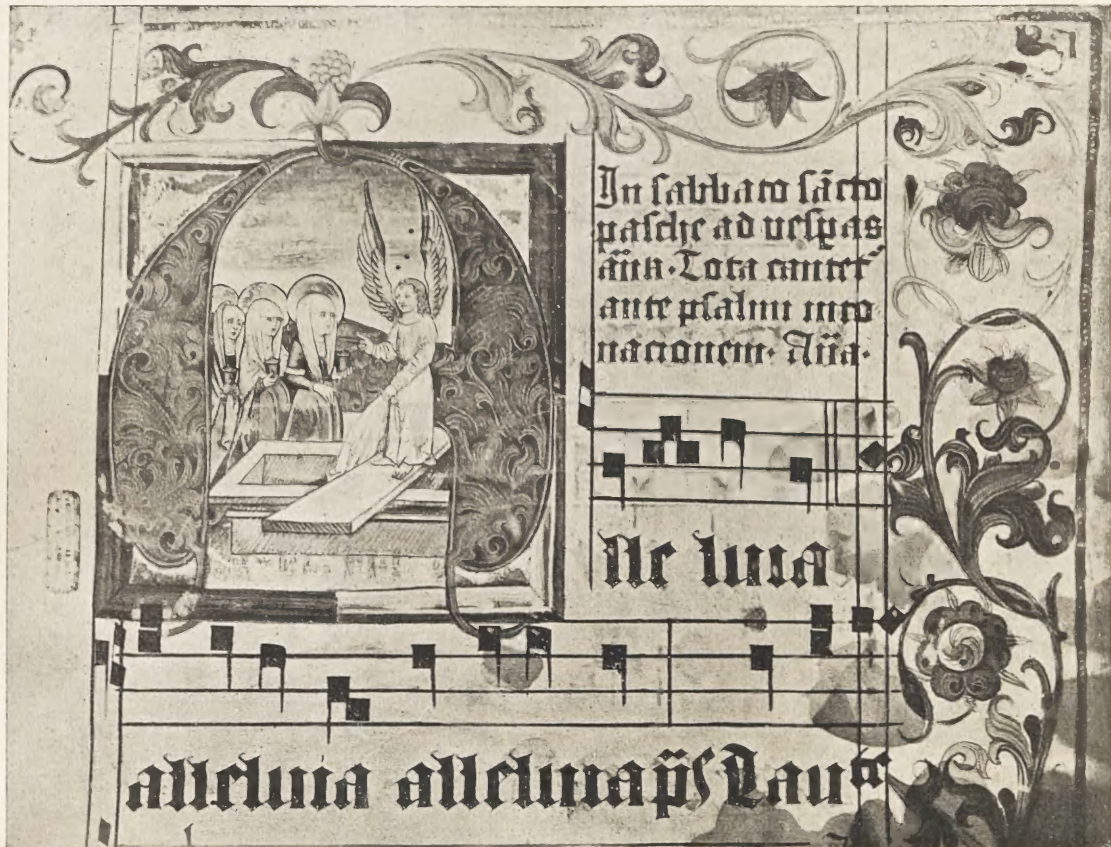 In sabbato sācto
pasche ad uesꝑas
añā. Tota cantet᷑
ante psalmi into
nacionem. Aña.
Alle luia
alleluia alleluia p̃s Laute